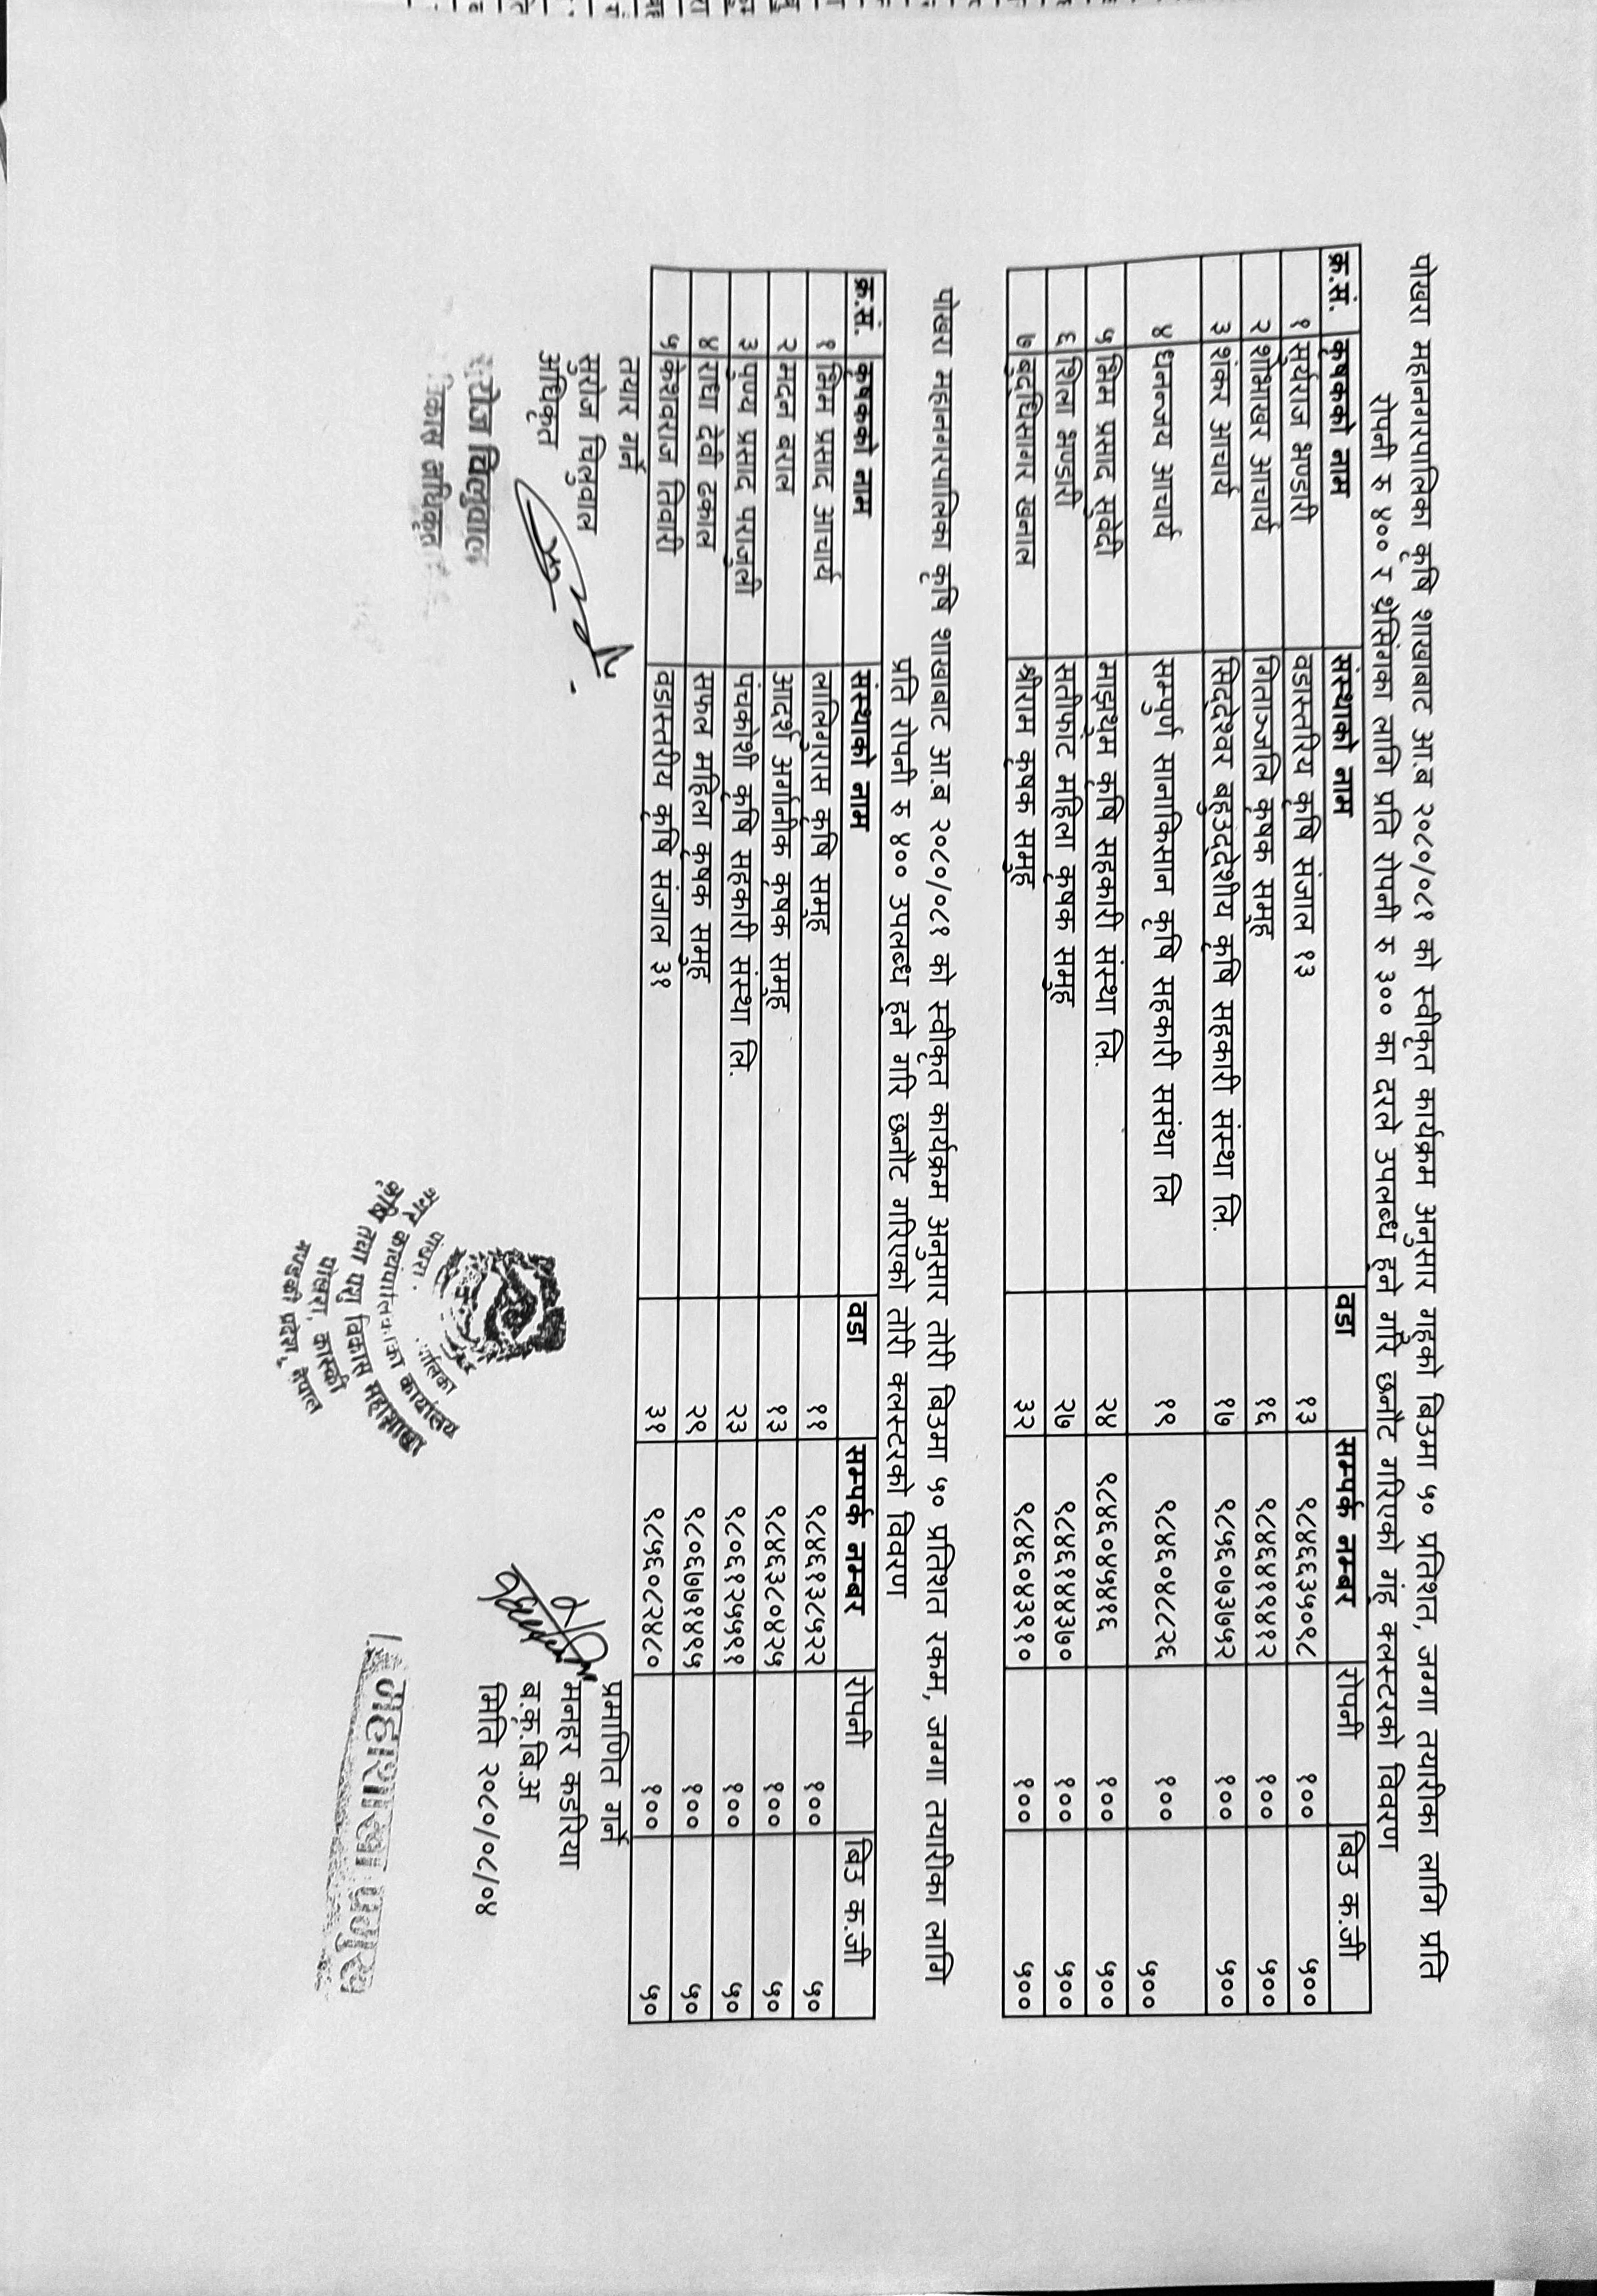 पोखरा महानगरपालिका कृषि शाखाबाट आ.ब २०८०/०८१ को स्वीकृत कार्यक्रम अनुसार गहुको बिउमा ५० प्रतिशत, जग्गा तयारीका लागि प्रति
रोपनी रु ४०० र थ्रेसिंगका लागि प्रति रोपनी रु ३०० का दरले उपलब्ध हुने गरि छनौट गरिएको गंहु क्लस्टरको विवरण
क्र.सं. कृषकको नाम संस्थाको नाम वडा सम्पर्क नम्बर रोपनी बिउ क.जी
१ सुर्यराज भण्डारी वडास्तरिय कृषि संजाल १३ १३ ९८४६६३५०९८ १०० ५००
२ शोभाखर आचार्य गिताञ्जलि कृषक समुह १६ ९८४६४९१४१२ १०० ५००
३ शंकर आचार्य सिद्देश्वर बहुउद्देशीय कृषि सहकारी संस्था लि. १७ ९८५६०७३७५२ १०० ५००
४ धनन्जय आचार्य सम्पुर्ण सानाकिसान कृषि सहकारी ससंथा लि १९ ९८४६०४८८२६ १०० ५००
५ भिम प्रसाद सुवेदी माझथुम कृषि सहकारी संस्था लि. २४ ९८४६०४५४१६ १०० ५००
६ शिला भण्डारी सतीफाट महिला कृषक समुह २७ ९८४६१४४३७० १०० ५००
७ बुद्धिसागर खनाल श्रीराम कृषक समुह ३२ ९८४६०४३९१० १०० ५००
पोखरा महानगरपालिका कृषि शाखाबाट आ.ब २०८०/०८१ को स्वीकृत कार्यक्रम अनुसार तोरी बिउमा ५० प्रतिशत रकम, जग्गा तयारीका लागि
प्रति रोपनी रु ४०० उपलब्ध हुने गरि छनौट गरिएको तोरी क्लस्टरको विवरण
क्र.सं. कृषकको नाम संस्थाको नाम वडा सम्पर्क नम्बर रोपनी बिउ क.जी
१ भिम प्रसाद आचार्य लालिगुरास कृषि समुह ११ ९८४६१३८५२२ १०० ५०
२ मदन बराल आदर्श अर्गानीक कृषक समुह १३ ९८४६३८०४२५ १०० ५०
३ पुण्य प्रसाद पराजुली पंचकोशी कृषि सहकारी संस्था लि. २३ ९८०६१२५५११ १०० ५०
४ राधा देवी ढकाल सफल महिला कृषक समुह २९ ९८०६७७१४१५ १०० ५०
५ केशवराज तिवारी वडास्तरीय कृषि संजाल ३१ ३१ ९८५६०८२४८० १०० ५०
तयार गर्ने प्रमाणित गर्ने
सरोज चिलुवाल मनहर कडरिया
अधिकृत ब.कृ.बि.अ
मिति २०८०/०८/०४
सरोज चिलुवाल
विकास अधिकृत
पोखरा
नगर कार्यपालिकाको कार्यालय
कृषि तथा पशु विकास महाशाखा
पोखरा, कास्की
गण्डकी प्रदेश, नेपाल
महाशाखा प्रमुख